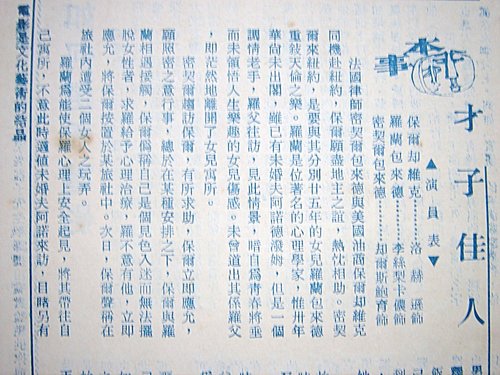 本事
才子佳人
▲演員表▼
保爾却維克………洛赫遜飾
羅蘭包來德………李絲梨卡儂飾
密契爾包來德………却爾斯鮑育飾
法國律師密契爾包來德與美國油商保爾却維克
同機赴紐約,保爾願盡地主之誼,熱忱相助。密契
爾來紐約,是要與其分別廿五年的女兒羅蘭包來德
重敍天倫之樂。羅蘭是位著名的心理學家,惟卅年
華尚未出閣,雖已有未婚夫阿諾德潑姆,但是一個
調情老手,羅父往訪,見此情景,暗自爲青春將垂
而未領悟人生樂趣的女兒傷感。未曾道出其係羅父
,即茫然地離開了女兒寓所。
密契爾趨訪保爾,有所求助,保爾立即應允,
願照密之意行事,總於在某種安排之下,保爾與羅
蘭相遇接觸,保爾僞稱自己是個見色入迷而無法擺
脫女性者,求羅給予心理治療,羅不意有他,立即
應允,將保爾按置於某旅社中。次日,保爾聲稱在
旅社內遭受二個女人之玩弄。
羅蘭爲能使保羅心理上安全起見,將其帶往自
己寓所,不意此時適値未婚夫阿諾來訪,目睹另有
電影是文化藝術的結晶